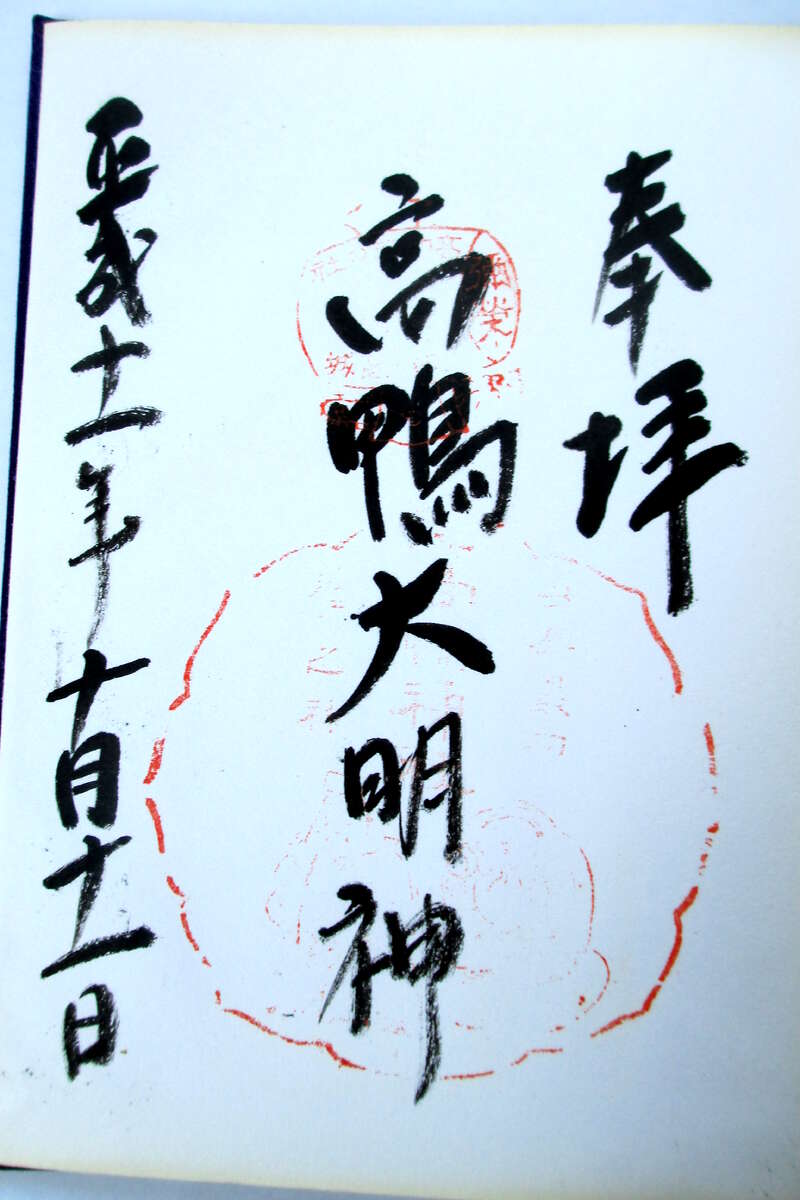 奉拝
高鴨大明神
平成十一年十月十一日